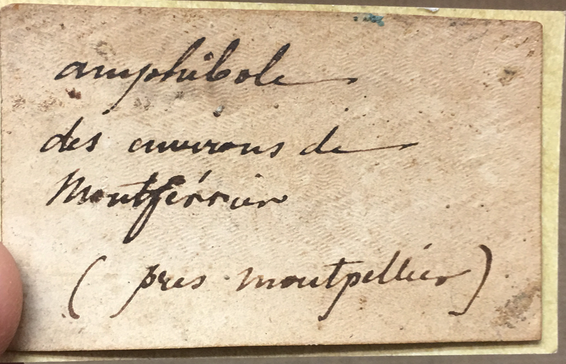 amphibole
des environs de
Montferrier
( près montpellier )